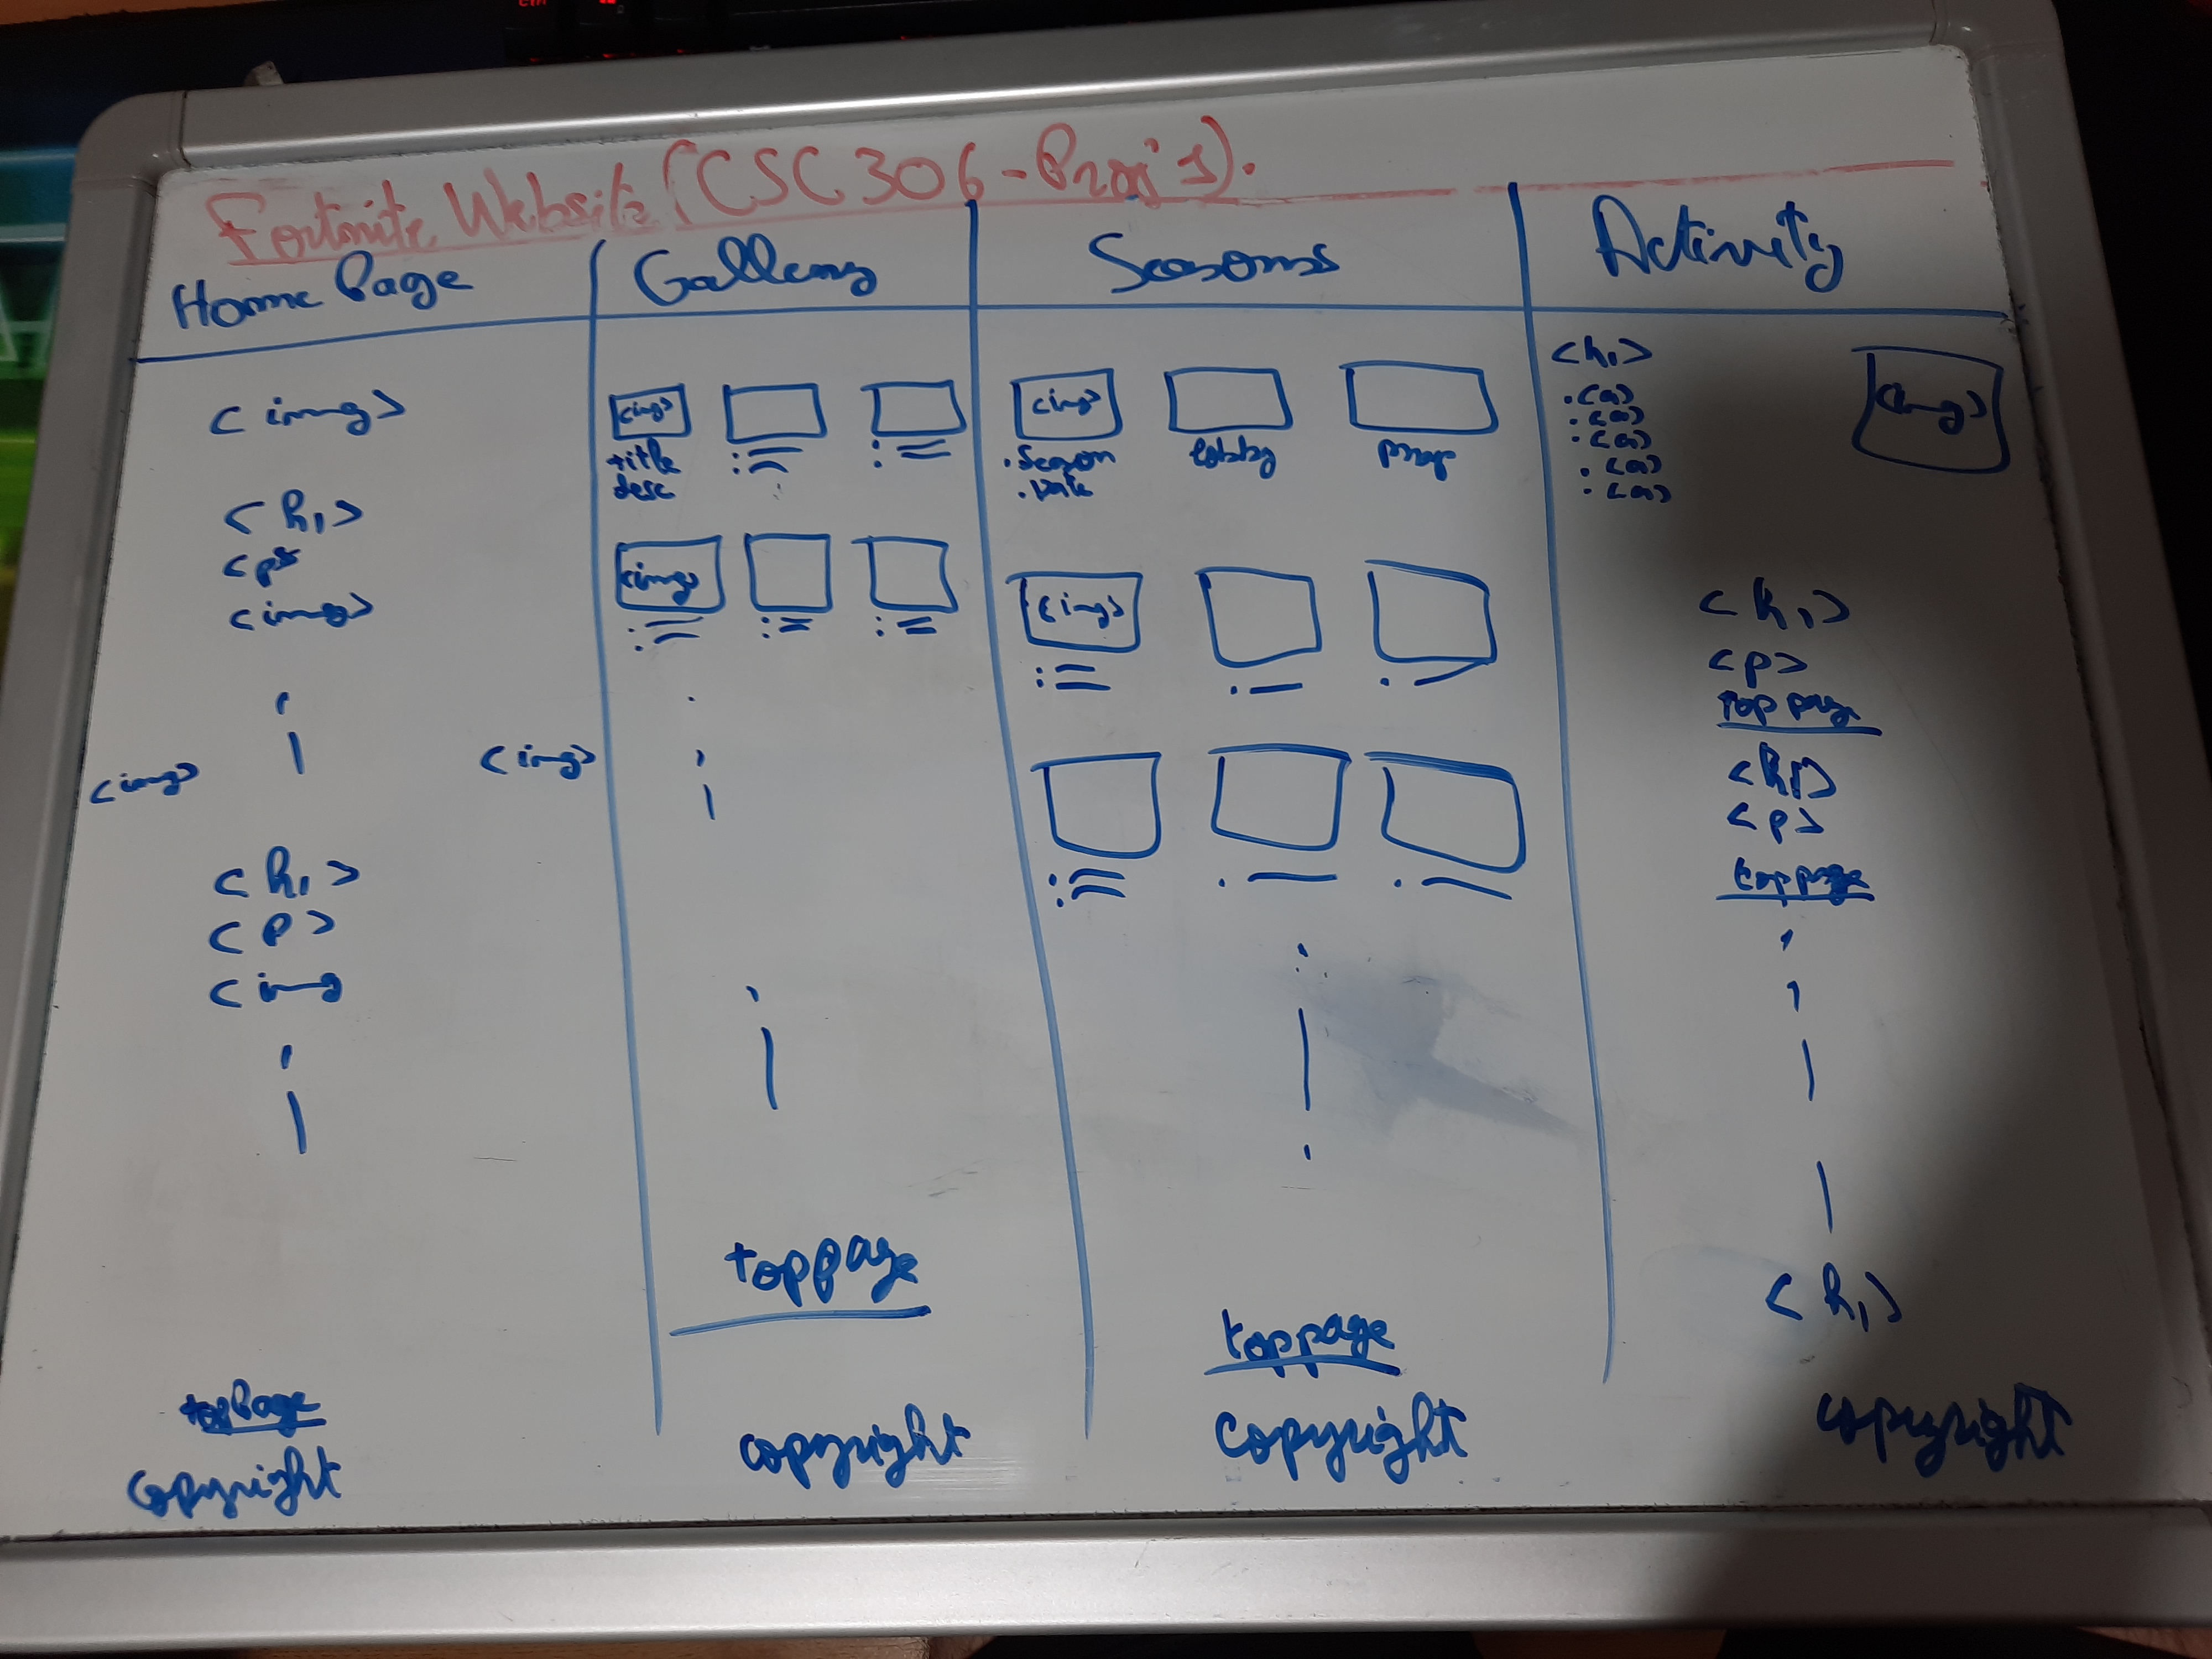 Fortnite Website (CSC306-Proj's).
Home Page
<img>
<h1>
<p>
<img>
<img>
<img>
<h1>
<p>
<img
topPage
copyright
Gallery
<img>
title
desc
<img>
toppage
copyright
Seasons
<img>
.Season
.Date
lobby
<img>
toppage
copyright
Activity
<h1>
.<a>
.<a>
.<a>
.<a>
.<a>
<img>
<h1>
<p>
top page
<h1>
<p>
top page
<h1>
copyright